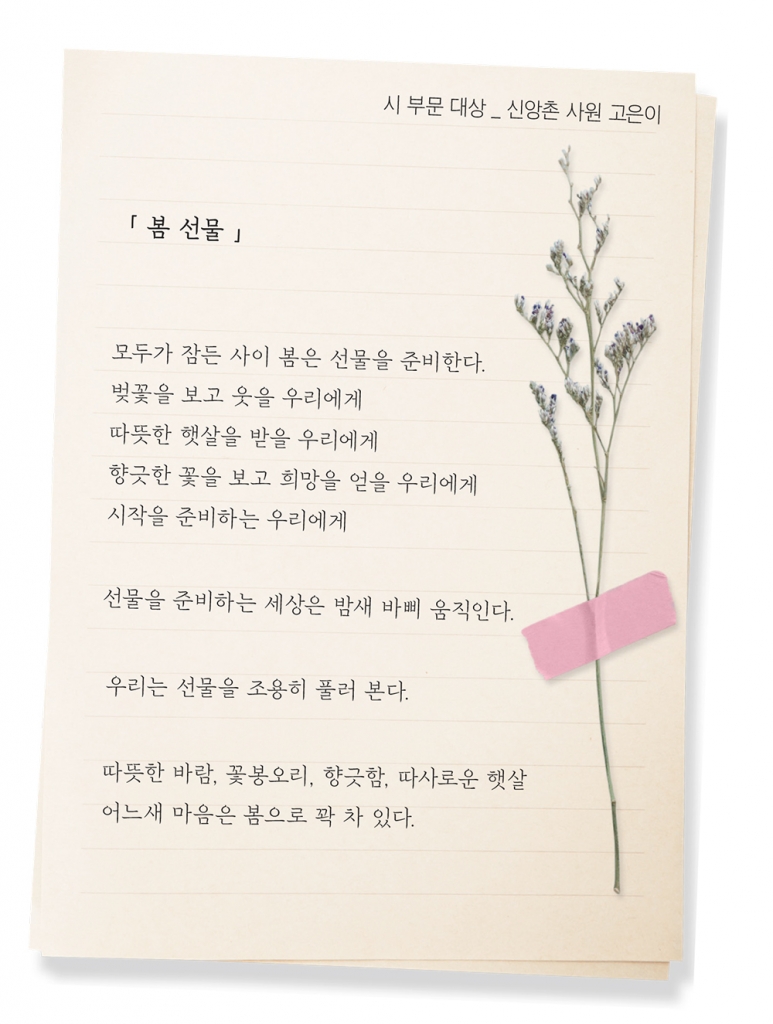 시 부문 대상 _ 신앙촌 사원 고은이
「 봄 선물 」
모두가 잠든 사이 봄은 선물을 준비한다.
벚꽃을 보고 웃을 우리에게
따뜻한 햇살을 받을 우리에게
향긋한 꽃을 보고 희망을 얻을 우리에게
시작을 준비하는 우리에게
선물을 준비하는 세상은 밤새 바삐 움직인다.
우리는 선물을 조용히 풀러 본다.
따뜻한 바람, 꽃봉오리, 향긋함, 따사로운 햇살
어느새 마음은 봄으로 꽉 차 있다.